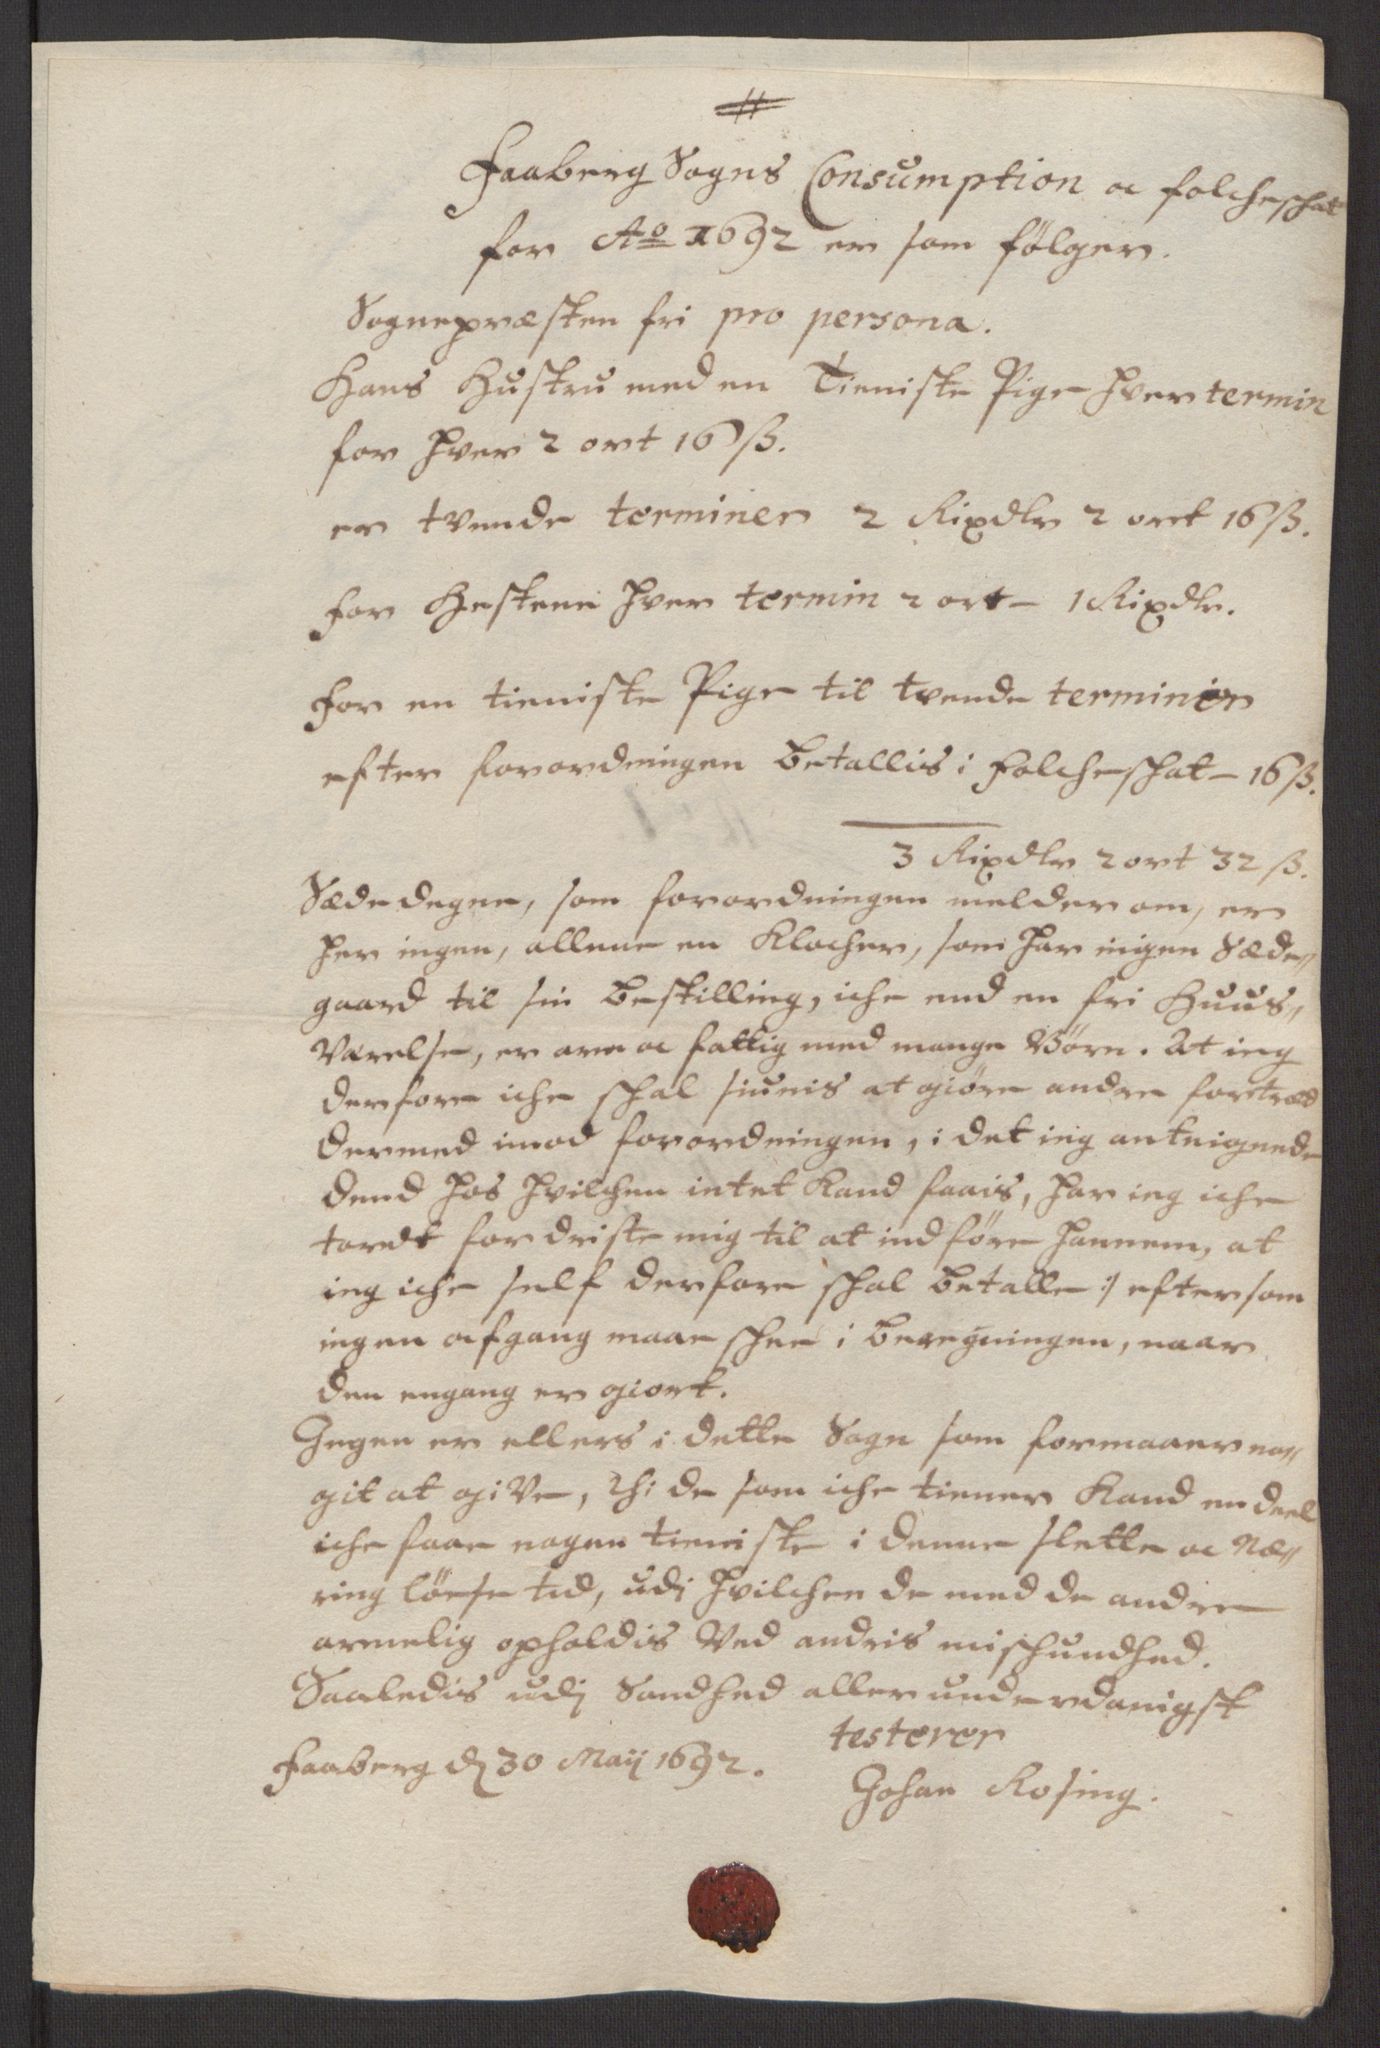 Faaberg Sogns Consumption oc folcheschat
for Ao 1692 er som følger.
Sognepræsten fri pro persona.
Hans Hustru med en Tieniste Pige hver termin
for hver 2 ort 16 ß.
er tvende terminer 2 Rixdlr 2 ort 16 ß.
for Hestene hver termin 2 ort – 1 Rixdlr.
for en tieniste Pige til tvende terminer
efter forordningen betallis i folcheschat – 16 ß.
3 Rixdlr 2 ort 32 ß.
Sædedegne, som forordningen melder om, er
her ingen, allene en Klocher, som har ingen Sæde„
gaard til sin bestilling, iche end en fri Huus„
Værelse, er arm oc fattig med mange Børn. At ieg
derfore iche schal siunis at giøre andre fortræd
dermed imod forordningen, i det ieg anteignede
dend hos hvilchen intet Kand faais, har ieg iche
tordt fordriste mig til at indføre hannem, at
ieg iche self derfore schal betalle :/ eftersom
ingen afgang maae schee i beregningen, naar
den engang er giort.
Ingen er ellers i dette Sogn som formaaer no„
git at give, thi de som iche tiener Kand en deel
iche faae nogen tieniste i denne slette oc Næ„
ring løese tid, udi hvilchen de med de andre
armelig opholdis Ved andris mischundhed.
Saaledis udi Sandhed allerunderdanigst
testerer
Faaberg d 30 Maij 1692.
Johan Rosing.